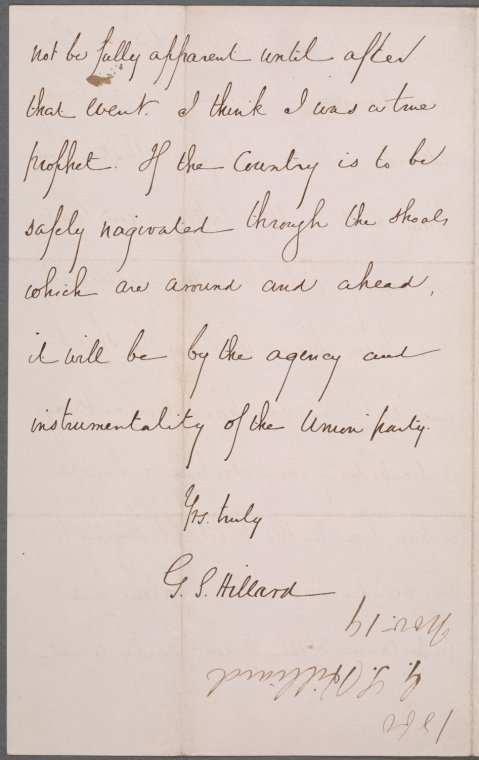 not be fully apparent until after
that event. I think I was a true
prophet. If the Country is to be
safely nagivated through the shoals
which are around and ahead,
it will be by the agency and
instrumentality of the Union party.
Yrs. truly
G. S. Hillard
1860
G. S. Hilliard
Nov. 19